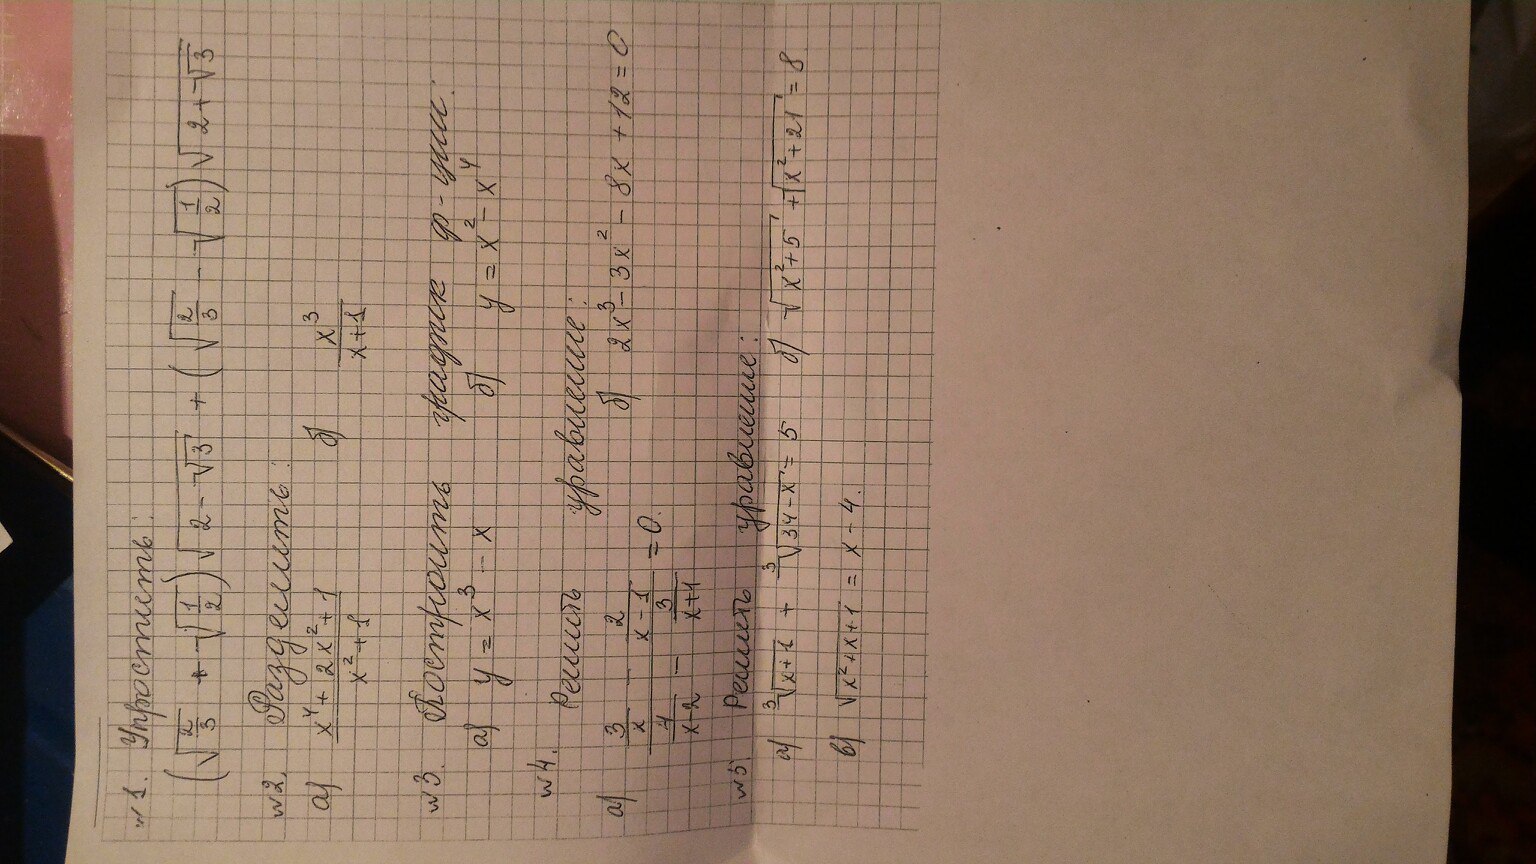 №1. Упростить:
(√(2/3) + √(1/2))√(2-√3) + (√(2/3) - √(1/2))√(2+√3)
№2. Разделить:
а) (x⁴+2x²+1)/(x²+1) б) x³/(x+1)
№3. Построить график ф-ции:
а) y = x³ - x б) y = x² - x⁴
№4. Решить уравнение:
а) (3/x - 2/(x-1))/(4/(x-2) - 3/(x+1)) = 0. б) 2x³ - 3x² - 8x + 12 = 0
№5. Решить уравнение:
а) ³√(x+1) + ³√(34-x) = 5 б) √(x²+5) + √(x²+21) = 8
в) √(x²+x+1) = x - 4.